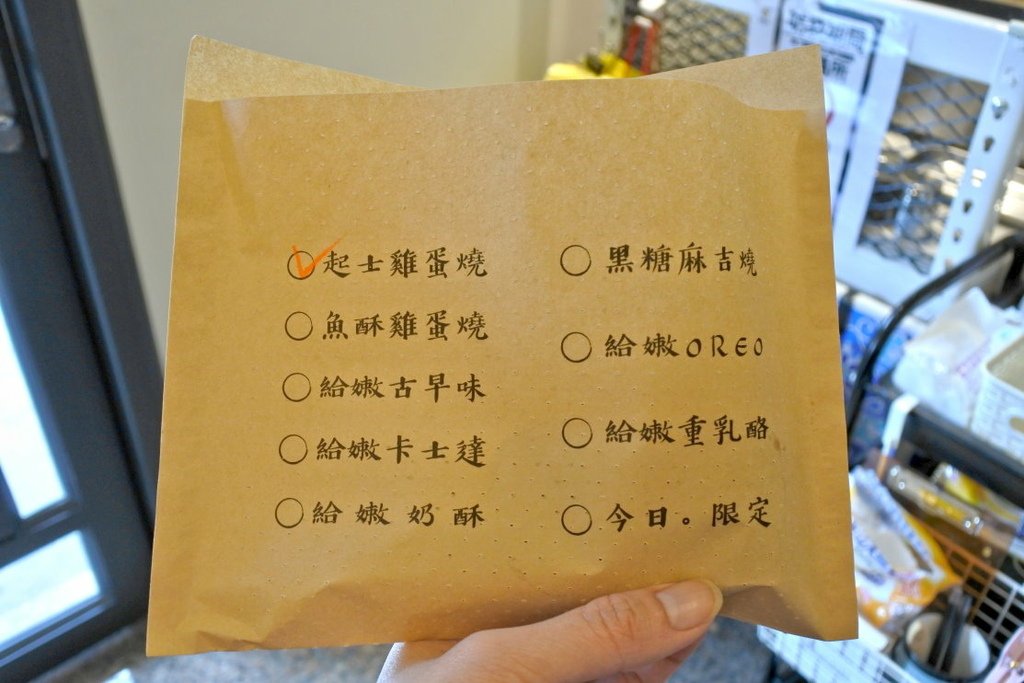 起士雞蛋燒
魚酥雞蛋燒
給嫩古早味
給嫩卡士達
給嫩奶酥
黑糖麻吉燒
給嫩OREO
給嫩重乳酪
今日。限定